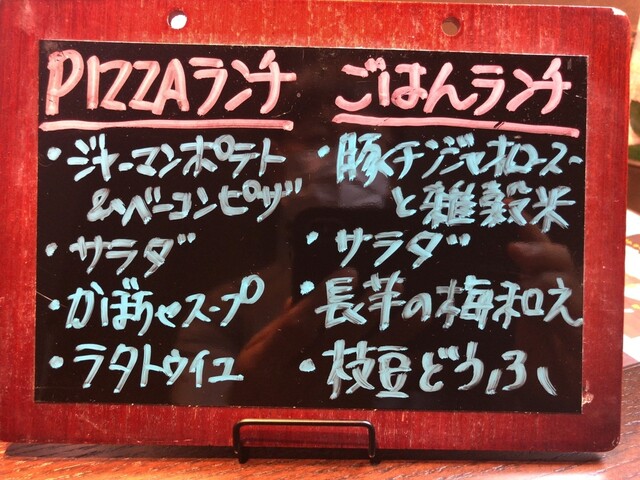 PIZZAランチ
・ジャーマンポテト
&ベーコンピザ
・サラダ
・かぼちゃスープ
・ラタトウイユ
ごはんランチ
・豚チンジャオロースー
と雑穀米
・サラダ
・長芋の梅和え
・枝豆どうふ